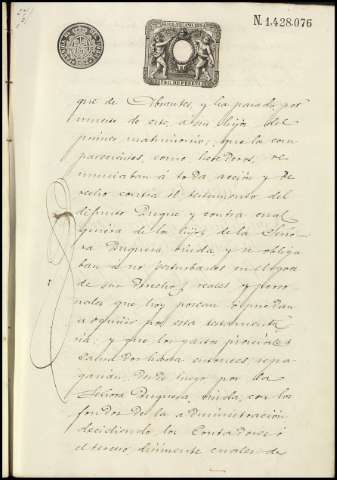 N. 1.428.076
que de Abrantes, y ha pasado por
muerte de este, a sus hijos del
primer matrimonio; que la com
parecientes, como tutores, re
nunciaban á toda acción y de
recho contra el testamento del
difunto Duque y contra cual
quiera de los hijos de la Seño
ra Duquesa viuda y se obliga
ban a no perturbarlos en el goce
de sus derechos reales y perso
nales que hoy poseen o puedan
adquirir por esta testamenta
ria; y que los gastos
hasta entonces, se pa
garian, desde luego por la
Señora Duquesa, viuda, con los
fondos de la administración
decidiendo los Contadores ó
el tercero, dirimente cuales de